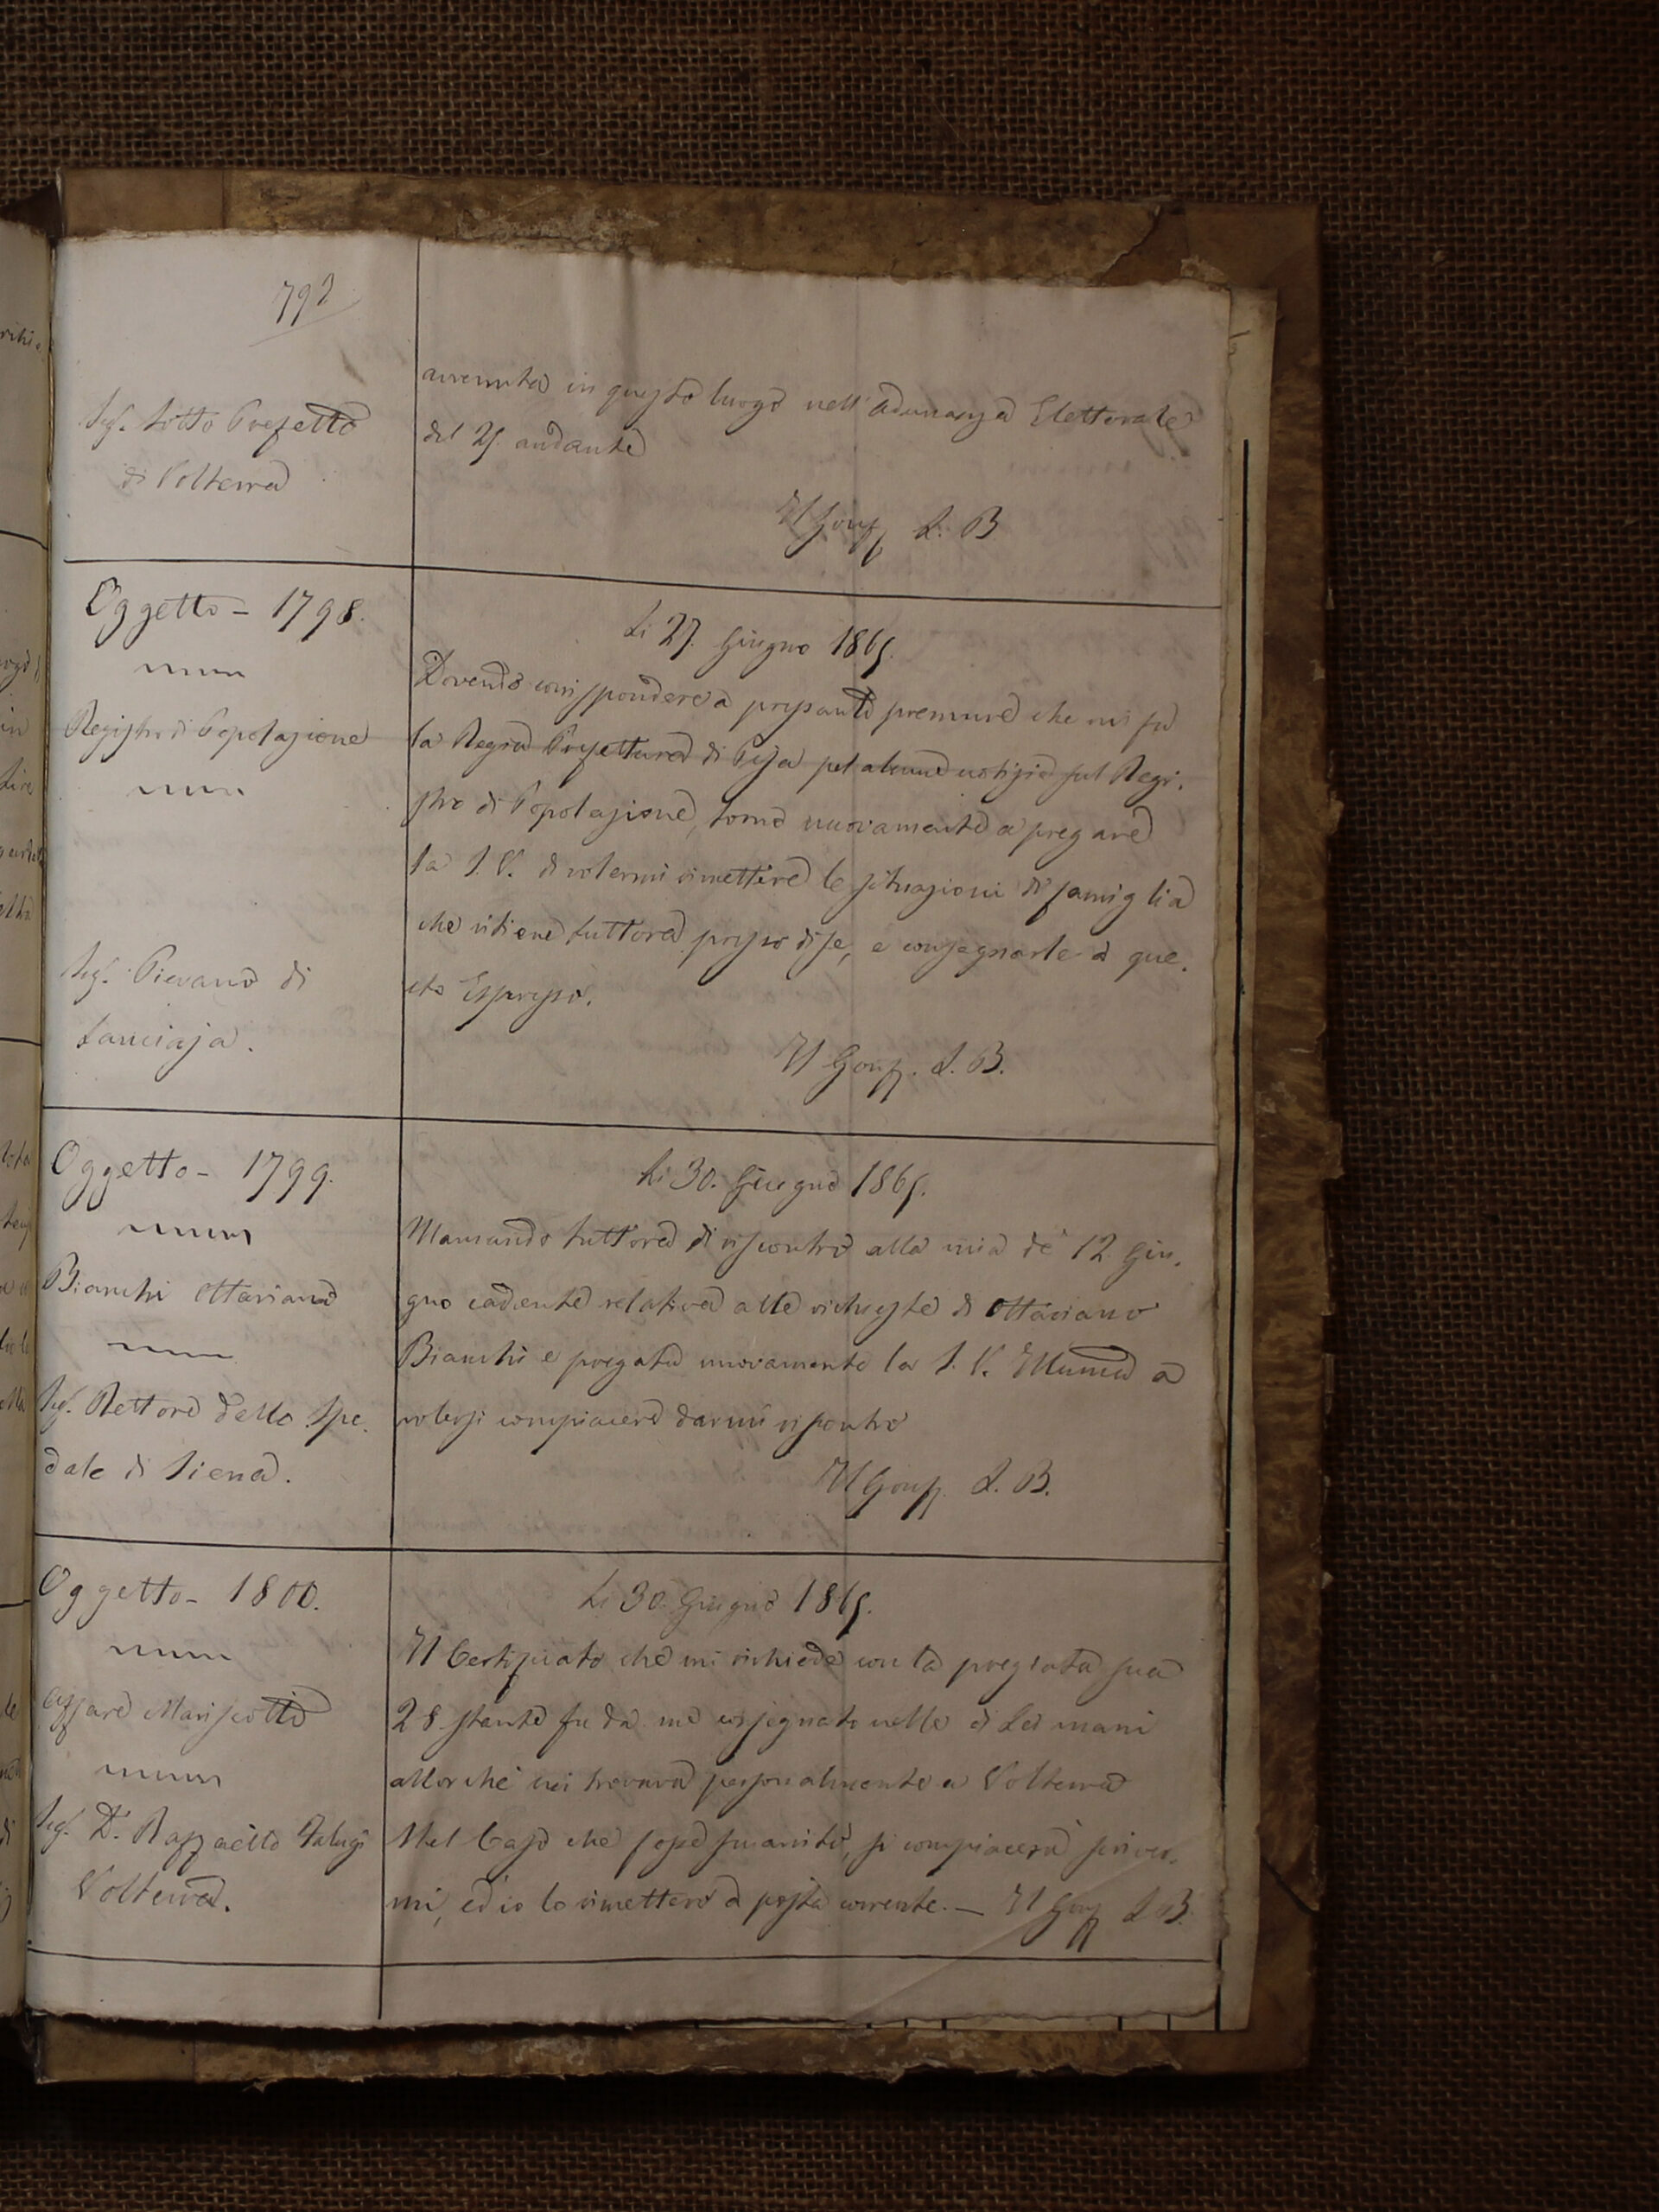 Sig. Sotto Prefetto
di Volterra
avvenuta in questo luogo nell'Adunanza Elettorale
del 25 andante
Il Gonf. L. B
Oggetto - 1798.
Registro di Popolazione
Sig. Pievano di
Lanciaja.
Li 27. Giugno 1865.
Dovendo corrispondere a pressanti premure che mi fa
la Regia Prefettura di Pisa pel alcune notizie sul Regi-
stro di Popolazione, torno nuovamente a pregare
la S. V. di volermi rimettere le situazioni di famiglia
che ritiene tuttora presso di se, e consegnarle a que-
sto Espresso.
Il Gonf. L. B.
Oggetto - 1799.
Bianchi Ottaviano
Sig. Rettore dello Spe-
dale di Siena.
Li 30. Giugno 1865.
Mancando tuttora di riscontro alla mia de' 12 Giu-
gno cadente relativa alle richieste di Ottaviano
Bianchi è pregata nuovamente la S. V. Illuma a
volersi compiacere darmi riscontro
Il Gonf. L. B.
Oggetto - 1800.
Affare Mariscotti
Sig. Dr. Raffaello Falugi
Volterra.
Li 30 Giugno 1865.
Il Certificato che mi richiede con la pregiata sua
28 stante fu da me consegnato nelle di Lei mani
allorchè mi trovava personalmente a Volterra
Nel Caso che fosse smarrito, si compiacerà scriver-
mi, ed io lo rimetterò a posta corrente. — Il Gonf L B.